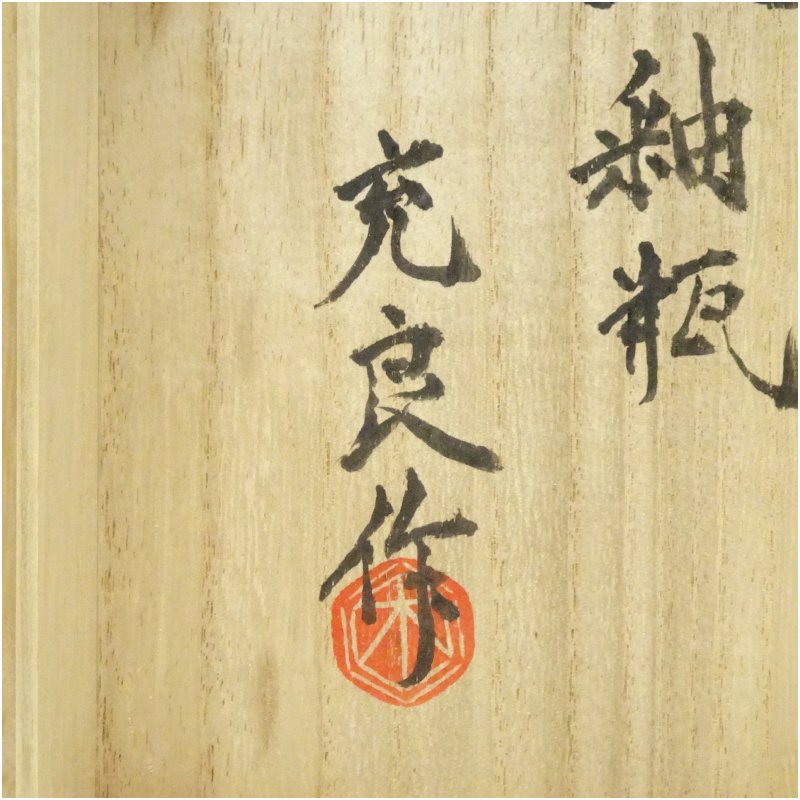 釉瓶
充良作
木